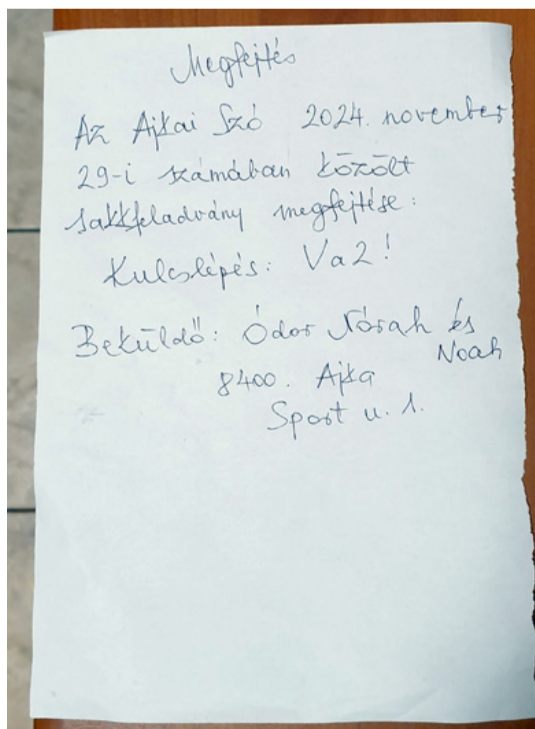 Megfejtés
Az Ajkai Szó 2024. november
29-i számában közölt
sakkfeladvány megfejtése:
Kulcslépés: Va2!
Beküldő: Ódor Nórah és
Noah
8400. Ajka
Sport u. 1.